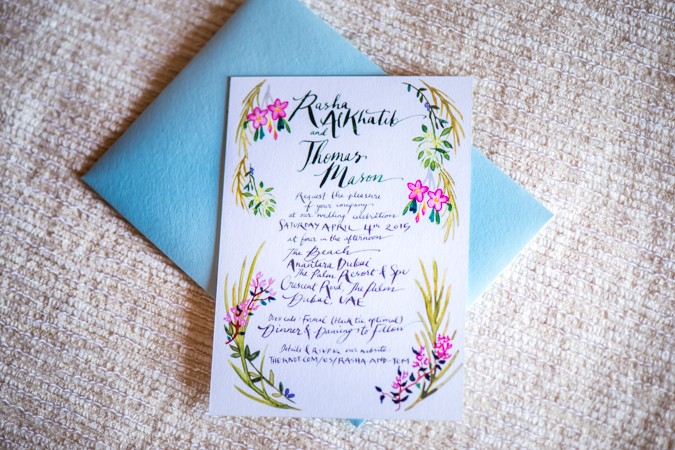 Rasha
AlKhatib
and
Thomas
Mason
Request the pleasure
of your company
at our wedding celebration
SATURDAY APRIL 4th 2015
at four in the afternoon
The Beach
Anantara Dubai
The Palm Resort & Spa
Crescent Road, The Palm
Dubai, UAE
Dress code: Formal (black tie optional)
Dinner & Dancing to follow
Details & RSVP on our website
THEKNOT.COM/US/RASHA-AND-TOM